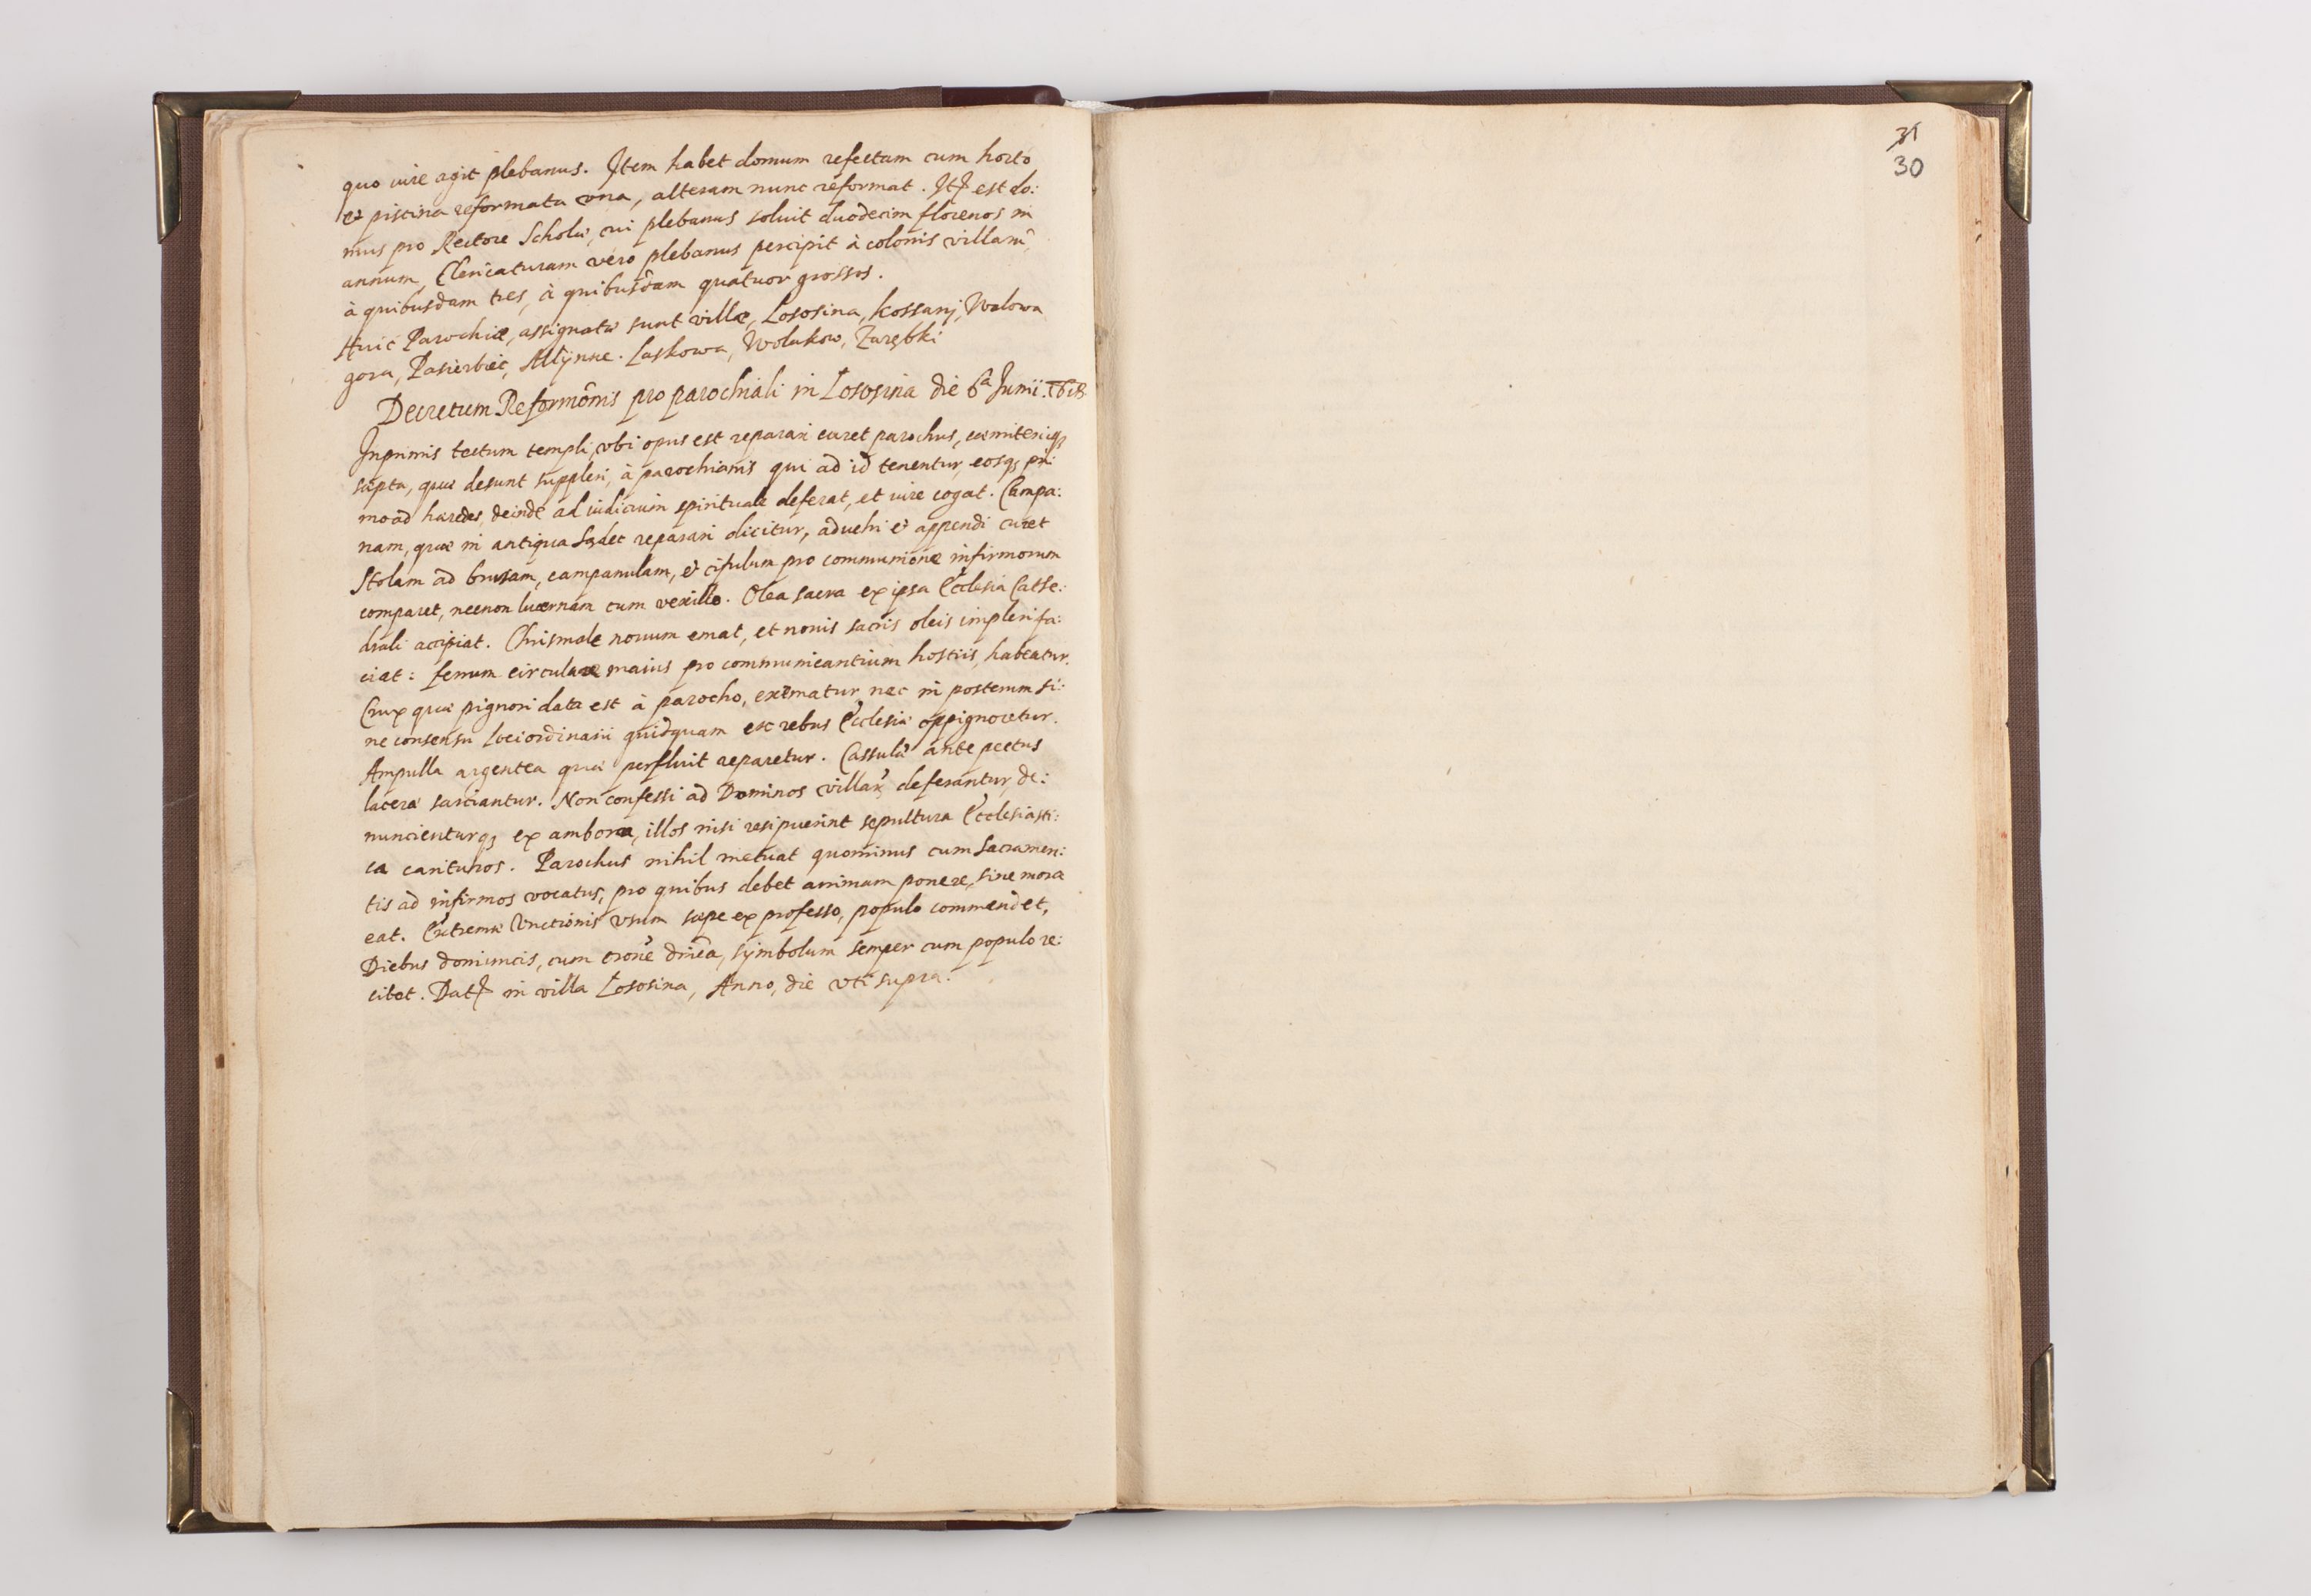 quo iure agit plebanus. Item habet domum refectam cum horto
et piscina reformata vna, alteram nunc reformat. It~ est do:
mus pro Rectore Scholæ, cui plebanus soluit duodecim florenos in
annum, Clericaturam vero plebanus percipit à colonis villarũ,
à quibusdam tres, à quibusdam quatuor grossos.
Huic Parochiæ, assignatæ sunt villæ, Lososina, Kossarÿ, Walowa
gora, Pasierbiec, Mlÿnne. Laskowa, Wolakow, Zarębki
Decretum Reformõnis pro parochiali in Lososina die 6ª Junii.
Inprimis tectum templi, vbi opus est reparari curet parochus, cæmiteriiq;
septa, quæ desunt suppleri, à parochianis qui ad id tenentur, eosq; pri:
mo ad hæredes, deinde ad iudicium spirituale deferat, et iure cogat. Campa:
nam, quæ in antiqua Sądec reparari dicitur, aduehi et appendi curet
Stolam ad bursam, campanulam, et cifulum pro communione infirmorum
comparet, necnon lucernam cum vexillo. Olea sacra ex ipsa Ecclesia Cathe:
drali accipiat. Chrismale nouum emat, et nouis sacris oleis impleri fa:
ciat: ferrum circulare maius pro communicantium hostiis, habeatur.
Crux quæ pignori data est à parocho, eximatur, nec in posterum si:
ne consensu loci ordinarii quidquam ex rebus Ecclesiæ oppignoretur.
Ampulla argentea quæ perfluit reparetur. Cassulæ ante pectus
laceræ sarciantur. Non confessi ad Dominos villar~ deferantur, de:
nuncienturq; ex ambona, illos nisi resipuerint sepultura Ecclesiasti:
ca carituros. Parochus nihil metuat quominus cum Sacramen:
tis ad infirmos vocatus, pro quibus debet animam ponere, sine mora
eat. Extremæ Vnctionis vsum sæpe ex professo, populo commendet,
Diebus dominicis, cum orõne dnica, sÿmbolum semper cum populo re:
citet. Dat~ in villa Lososina, Anno, die vti supra.
31
30